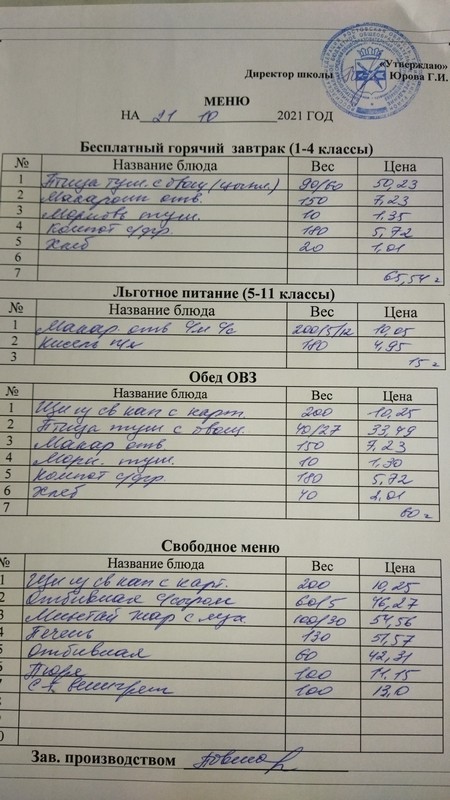 «Утверждаю»
Директор школы Юрова Г.И.
МЕНЮ
НА 21 10 2021 ГОД
Бесплатный горячий завтрак (1-4 классы)
№ Название блюда Вес Цена
1 Птица туш. с овощ (цыпл.) 90/60 50,23
2 Макароны отв. 150 7,23
3 Морковь туш. 10 1,35
4 Компот с/фр. 180 5,72
5 Хлеб 20 1,01
6
7 65,54
Льготное питание (5-11 классы)
№ Название блюда Вес Цена
1 Макар. отв с/м с/с 200/5/12 10,05
2 Кисель п/к 180 4,95
3 15
Обед ОВЗ
№ Название блюда Вес Цена
1 Щи из св кап с карт. 200 10,25
2 Птица туш с овощ. 40/27 33,49
3 Макар отв 150 7,23
4 Морк. туш. 10 1,30
5 Компот с/фр. 180 5,72
6 Хлеб 40 2,01
7 60
Свободное меню
№ Название блюда Вес Цена
1 Щи из св кап с карт. 200 10,25
2 Отбивная с/сыром 60/5 46,27
3 Минтай жар с 100/30 54,56
4 Печень 130 51,57
5 Отбивная 60 42,31
6 Пюре 100 11.15
7 С-т винегрет 100 13,0
8
9
0
Зав. производством